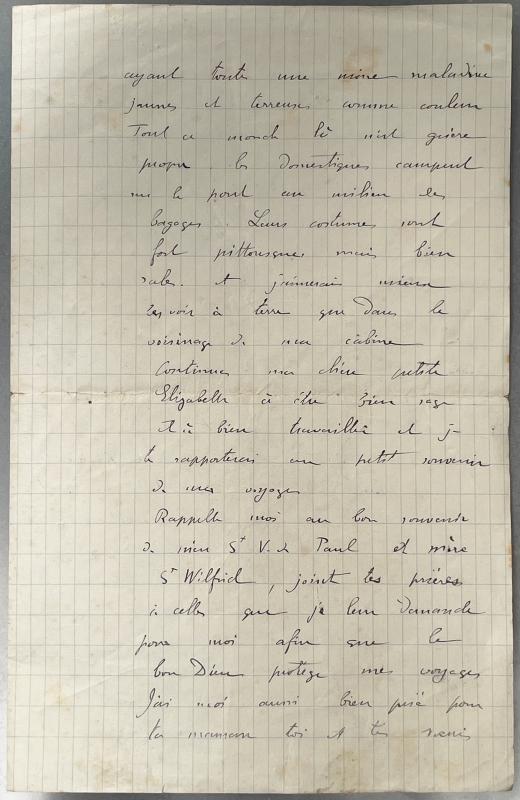 ayant toutes une mine maladive
jaunes et terreuses comme couleur
Tout ce monde là n'est guère
propre. les domestiques campent
sur le pont au milieu des
bagages. Leurs costumes sont
fort pittoresques mais bien
sales. et j'aimerais mieux
les voir à terre que dans le
voisinage de ma cabine
Continues ma chère petite
Elizabeth à être bien sage
et à bien travailler et je
te rapporterai un petit souvenir
de mes voyages
Rappelle moi au bon souvenir
de mère St V. de Paul et mère
St Wilfrid, joint tes prières
à celles que je leur demande
pour moi afin que le
bon Dieu protège mes voyages
J'ai moi aussi bien prié pour
ta maman toi et tes